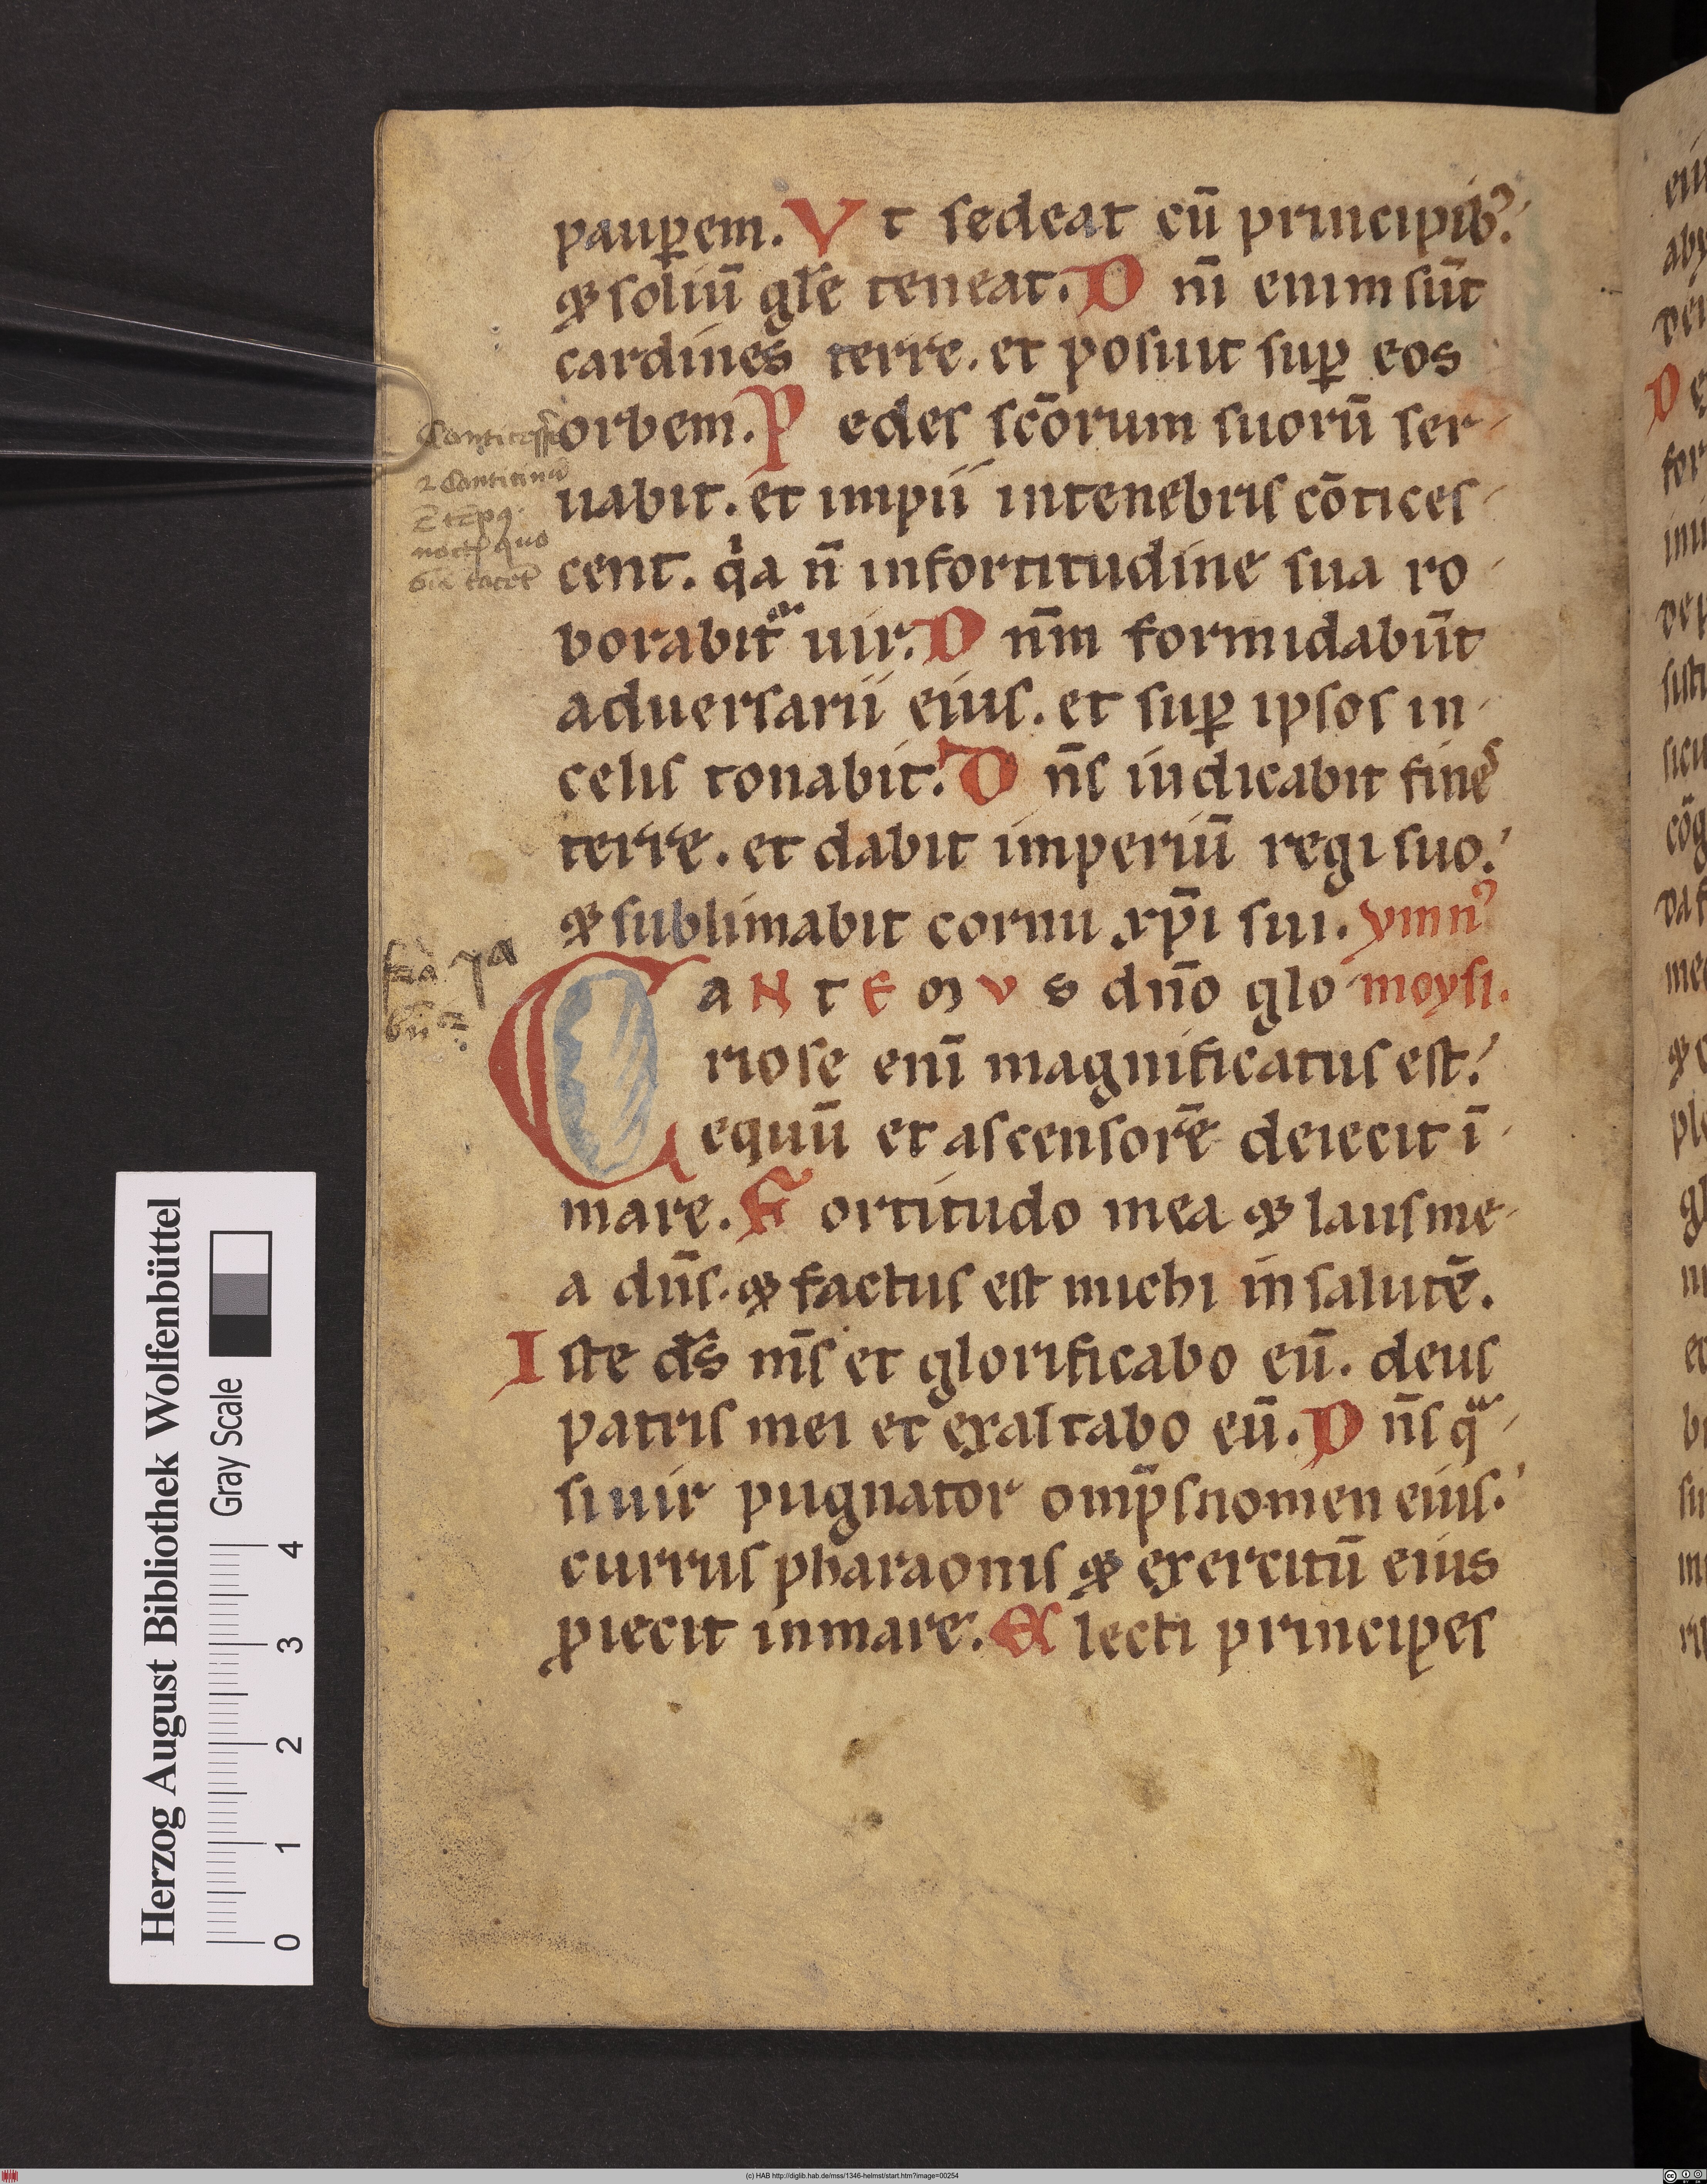 paup̲em. Vt sedeat cū principib⁊.
& soliū gl̄e teneat. Dnī enim sūt
cardines terre. et posuit sup̲ eos
orbem. Pedes sc̄orum suorū ser-
uabit. et impii in tenebris cōtices-
cent. qͥa n̄ in fortitudine sua ro-
borabit᷑ uir. Dn̄m formidabūt
aduersarii eius. et sup̲ ipsos in-
celis tonabit. Dn̄s iudicabit fines
terre. et dabit imperiū regi suo.
& sublimabit cornu xp̄i sui. ymnꝰ
CaNtEmVs dn̄o glo- moysi.
riose enī magnificatus est.
equū et ascensorē deiecit ī-
mare. Fortitudo mea & laus me-
a dn̄s. & factus est michi in salutē.
Iste ds̄ ms̄ et glorificabo eū. deus
patris mei et exaltabo eū. Dn̄s qᷓ-
si uir pugnator omp̄s nomen eius.
currus pharaonis & exercitū eius
ꝓiecit in mare. Electi principes
Herzog August Bibliothek Wolfenbüttel
Gray Scale
0 1 2 3 4
(c) HAB http://diglib.hab.de/mss/1346-helmst/start.htm?image=00254